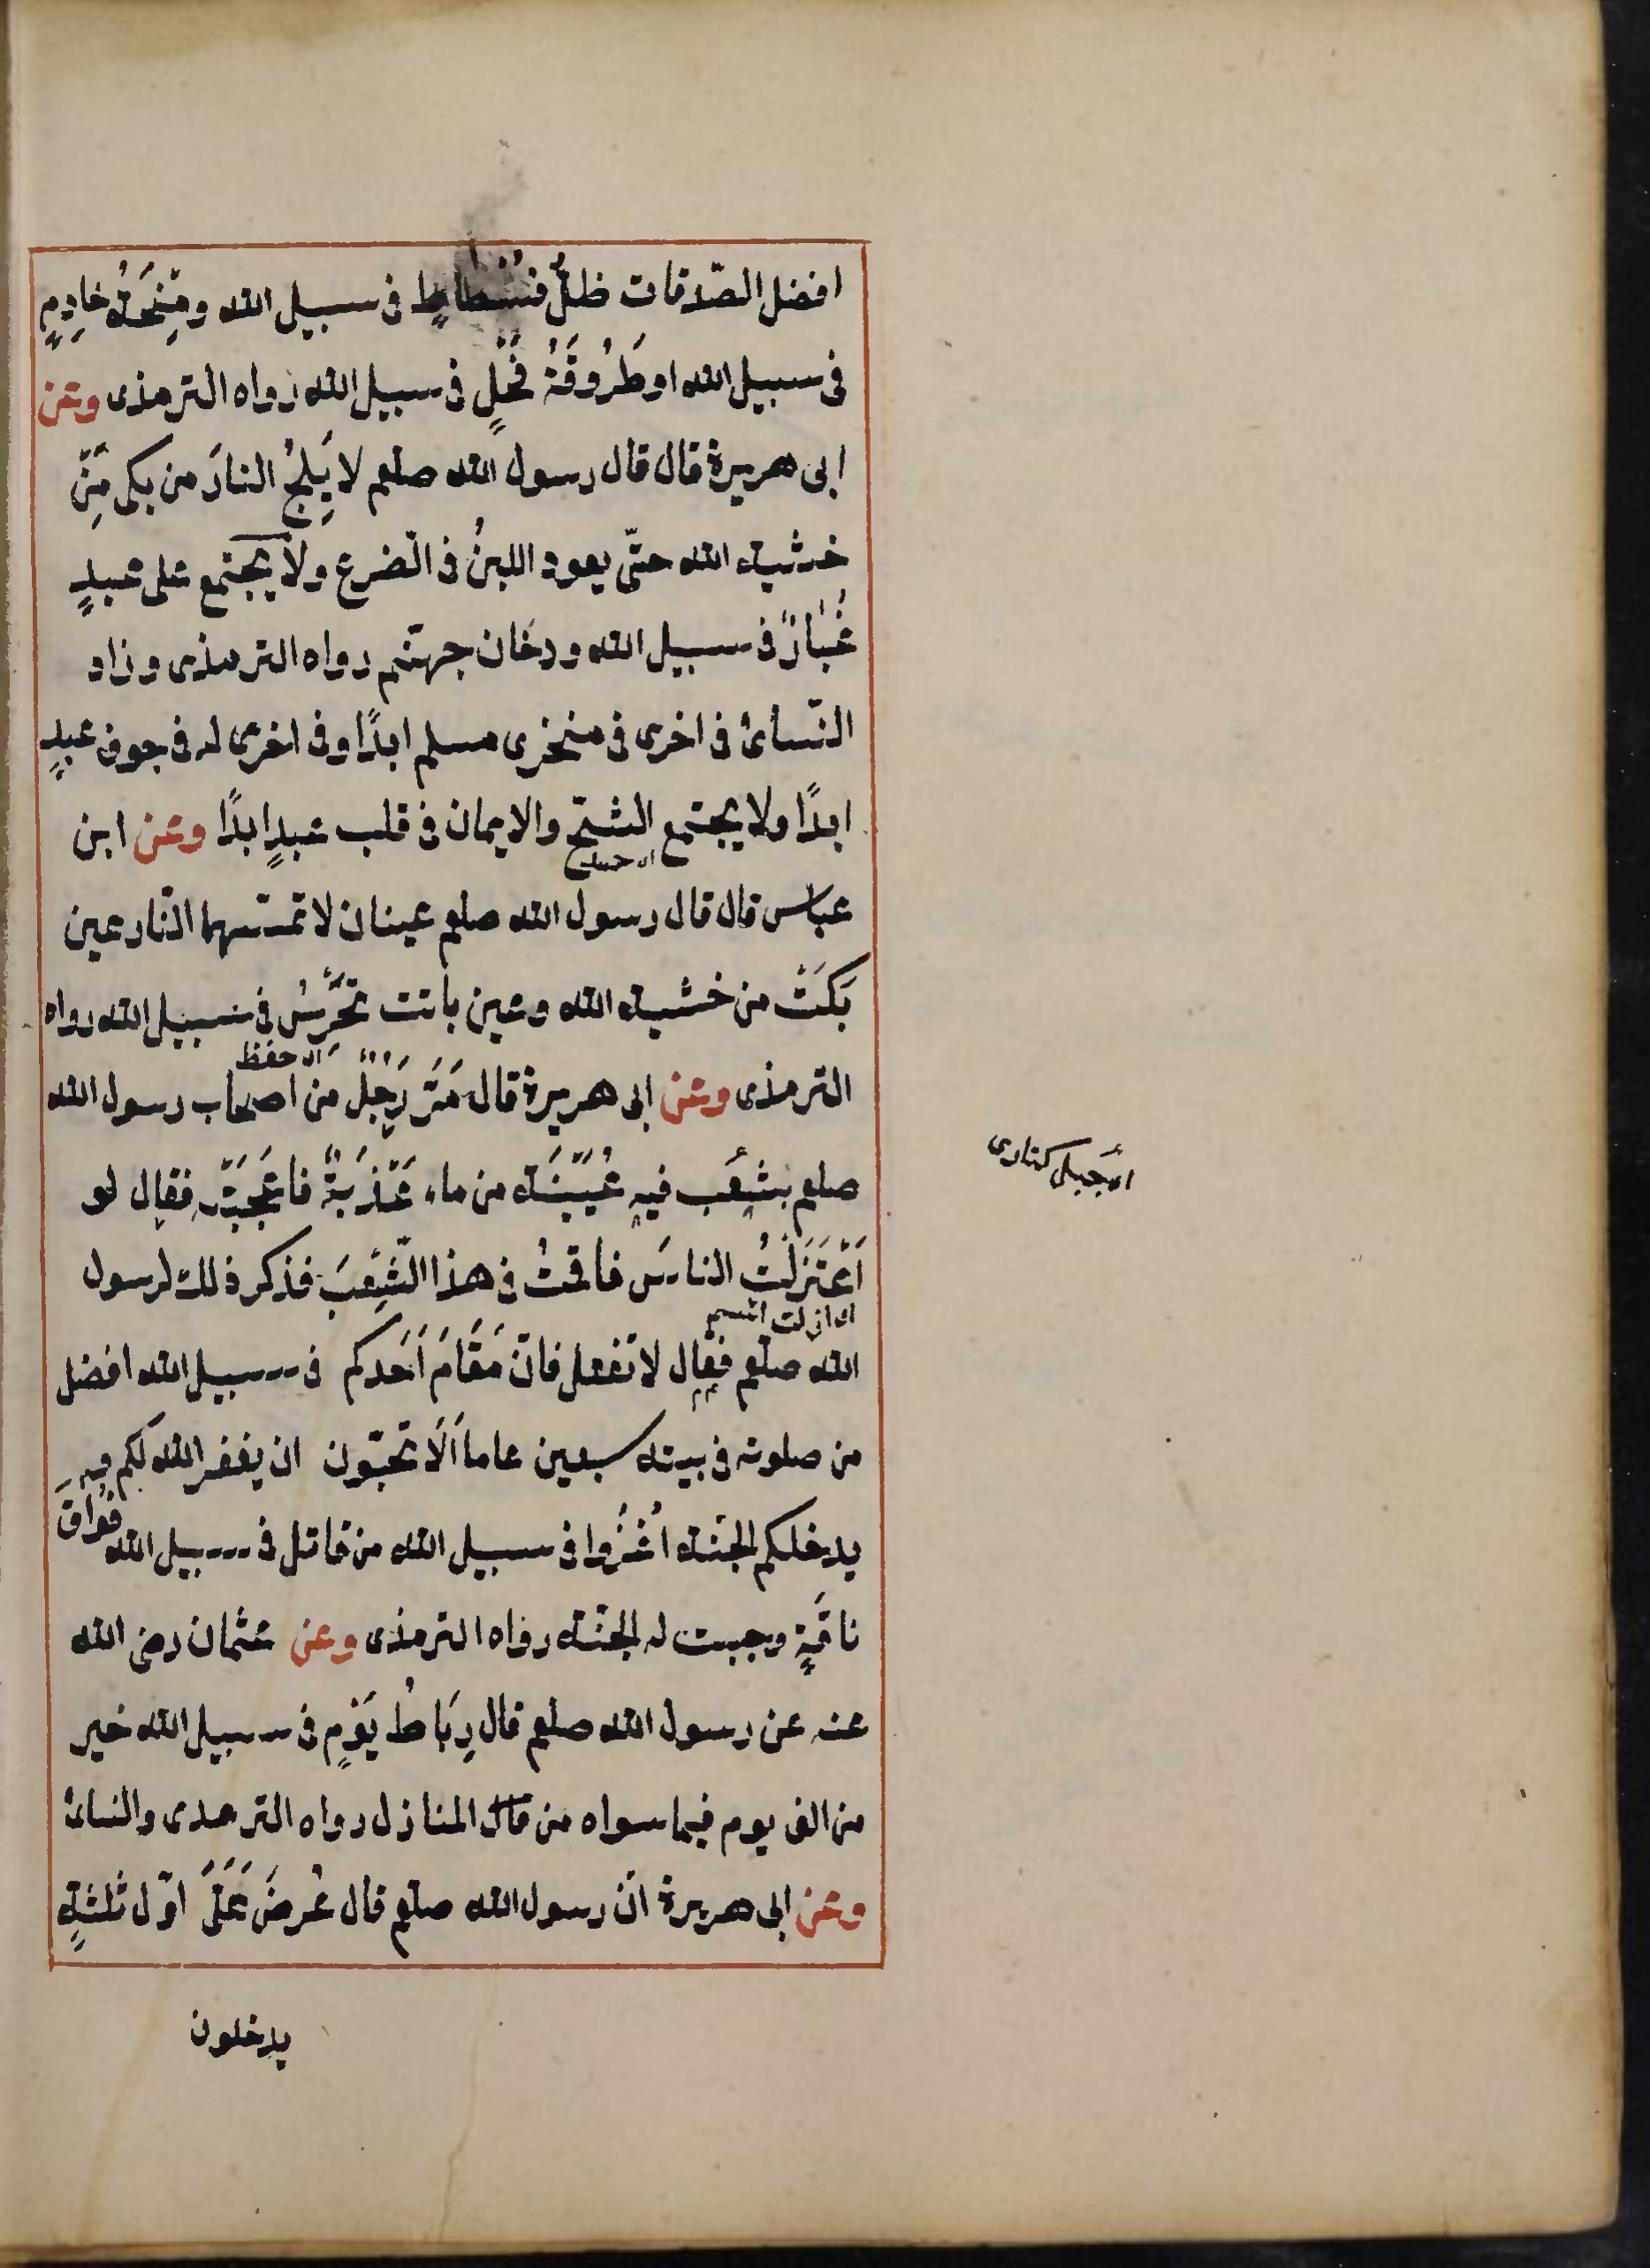 افضل الصّدقات ظلُّ فُسْطاطٍ فى سبيل الله ومِنْحَةُ خادِمٍ
فى سبيل الله او طَرُوقَةُ فَحْلٍ فى سبيل الله رواه الترمذى وعن
ابى هريرة قال قال رسول الله صلعم لا يَلِجُ النارَ من بكى مِنْ
خشية الله حتّى يعود اللبنُ فى الضرع ولا يَجْتمع على عبدٍ
غُبَارٌ فى سبيل الله ودخان جهنّم رواه الترمذى وزاد
النّسائ فى اخرى فى منخرى مسلم ابدًا وفى اخرى له فى جوف عبدٍ
ابدًا ولا يجتمع الشحّ والايمان فى قلب عبدٍ ابدًا وعن ابن
عباس قال قال رسول الله صلعم عينان لا تمسّهما النّار عين
بَكَتْ من خشية الله وعين باتت تَحْرُسُ فى سبيل الله رواه
اى حفظ
الترمذى وعن ابى هريرة قال مَرَّ رَجُلٌ من اصحاب رسول الله
صلعم بشِعْب فيه عُيَيْنَة من ماء عَذْبَةٌ فاَعْجَبَتْه فقال لو
اَعْتَزَلْتُ الناسَ فأقمتُ فى هذا الشِّعْبَ فذكر ذلك لرسول
الله صلعم فقال لا تفعل فانّ مَقَامَ اَحَدكم فى سبيل الله افضل
من صلوته فى بيته سبعين عاما اَلَا تحبّون ان يغفر الله لكم و
يدخلكم الجنّة اُغْزُوا فى سبيل الله من قاتل فى سبيل الله فُوَاقَ
ناقَةٍ وجبت له الجنّة رواه الترمذى وعن عثمان رضى الله
عنه عن رسول الله صلعم قال رِبَاطُ يَوْمٍ فى سبيل الله خير
من الف يوم فيما سواه من المنازل رواه الترمذى والنسائ
وعن ابى هريرة انّ رسول الله صلعم قال عُرِضَ عَلَىَّ اوّل ثلثةٍ
يدخلون